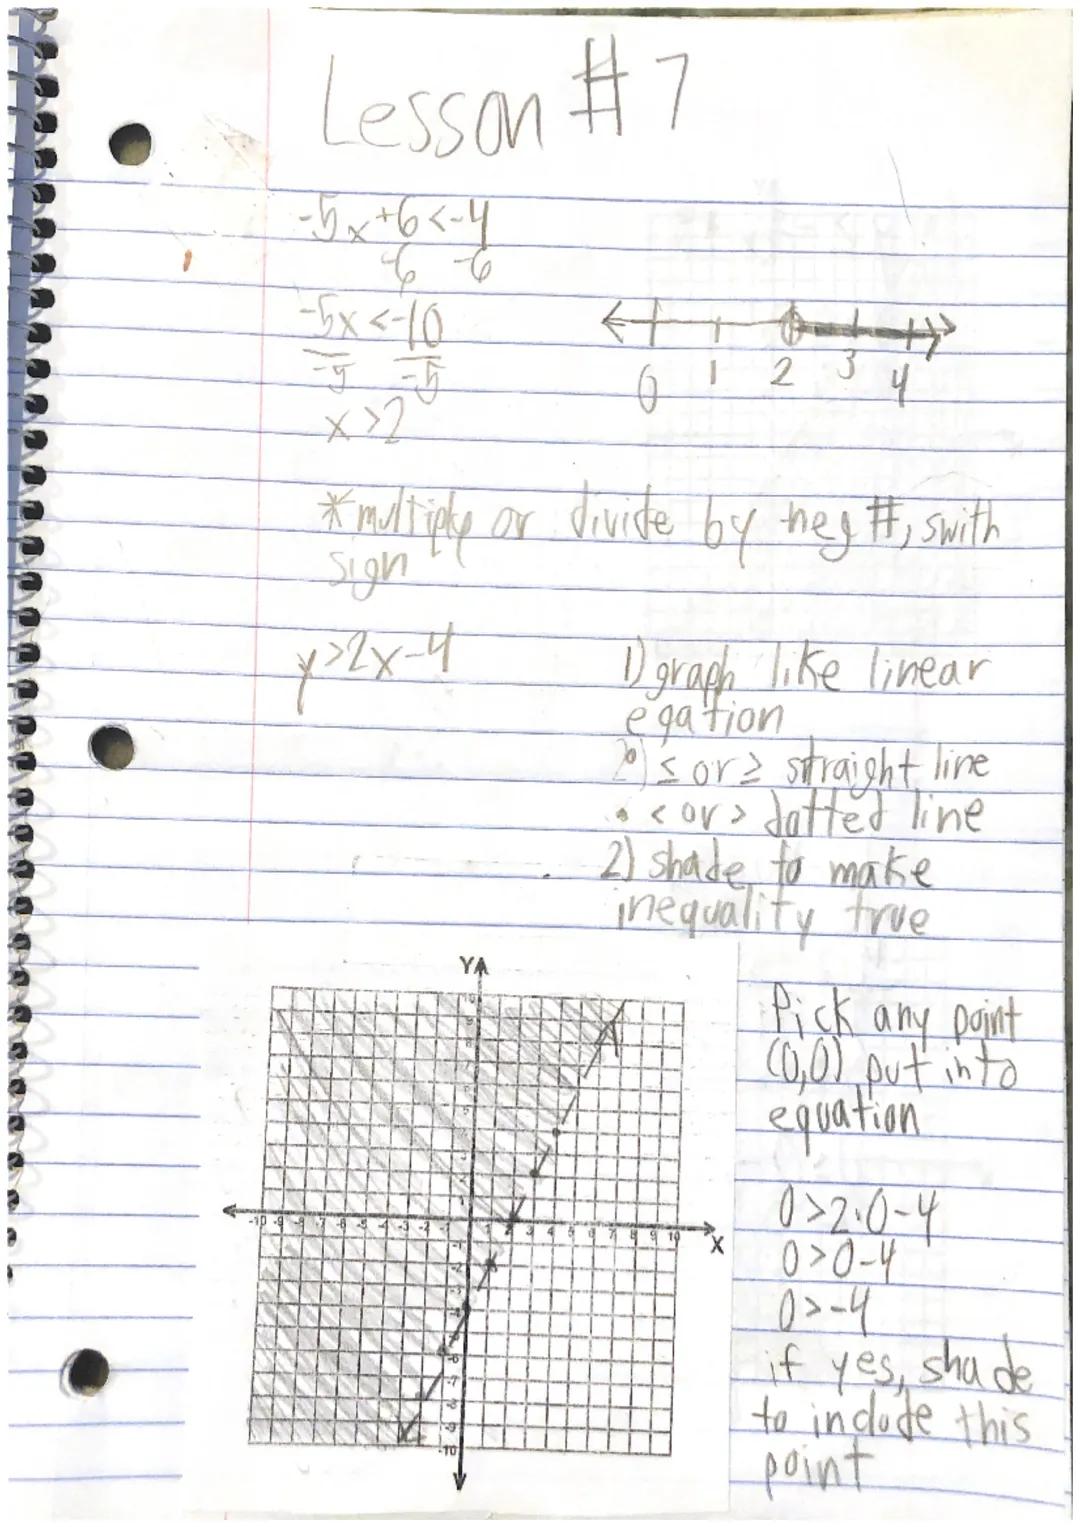 Lesson # 7
-5x+6<-4
-6 -6
-5x<-10
-5 -5
x>2
0 1 2 3 4
*multiply or divide by neg #, swith
sign
y>2x-4
1) graph like linear
eqation
≤ or ≥ straight line
• < or > dotted line
2) shade to make
inequality true
Y
X
Pick any point
(0,0) put into
equation
0>2·0-4
0>0-4
0>-4
if yes, shade
to include this
point